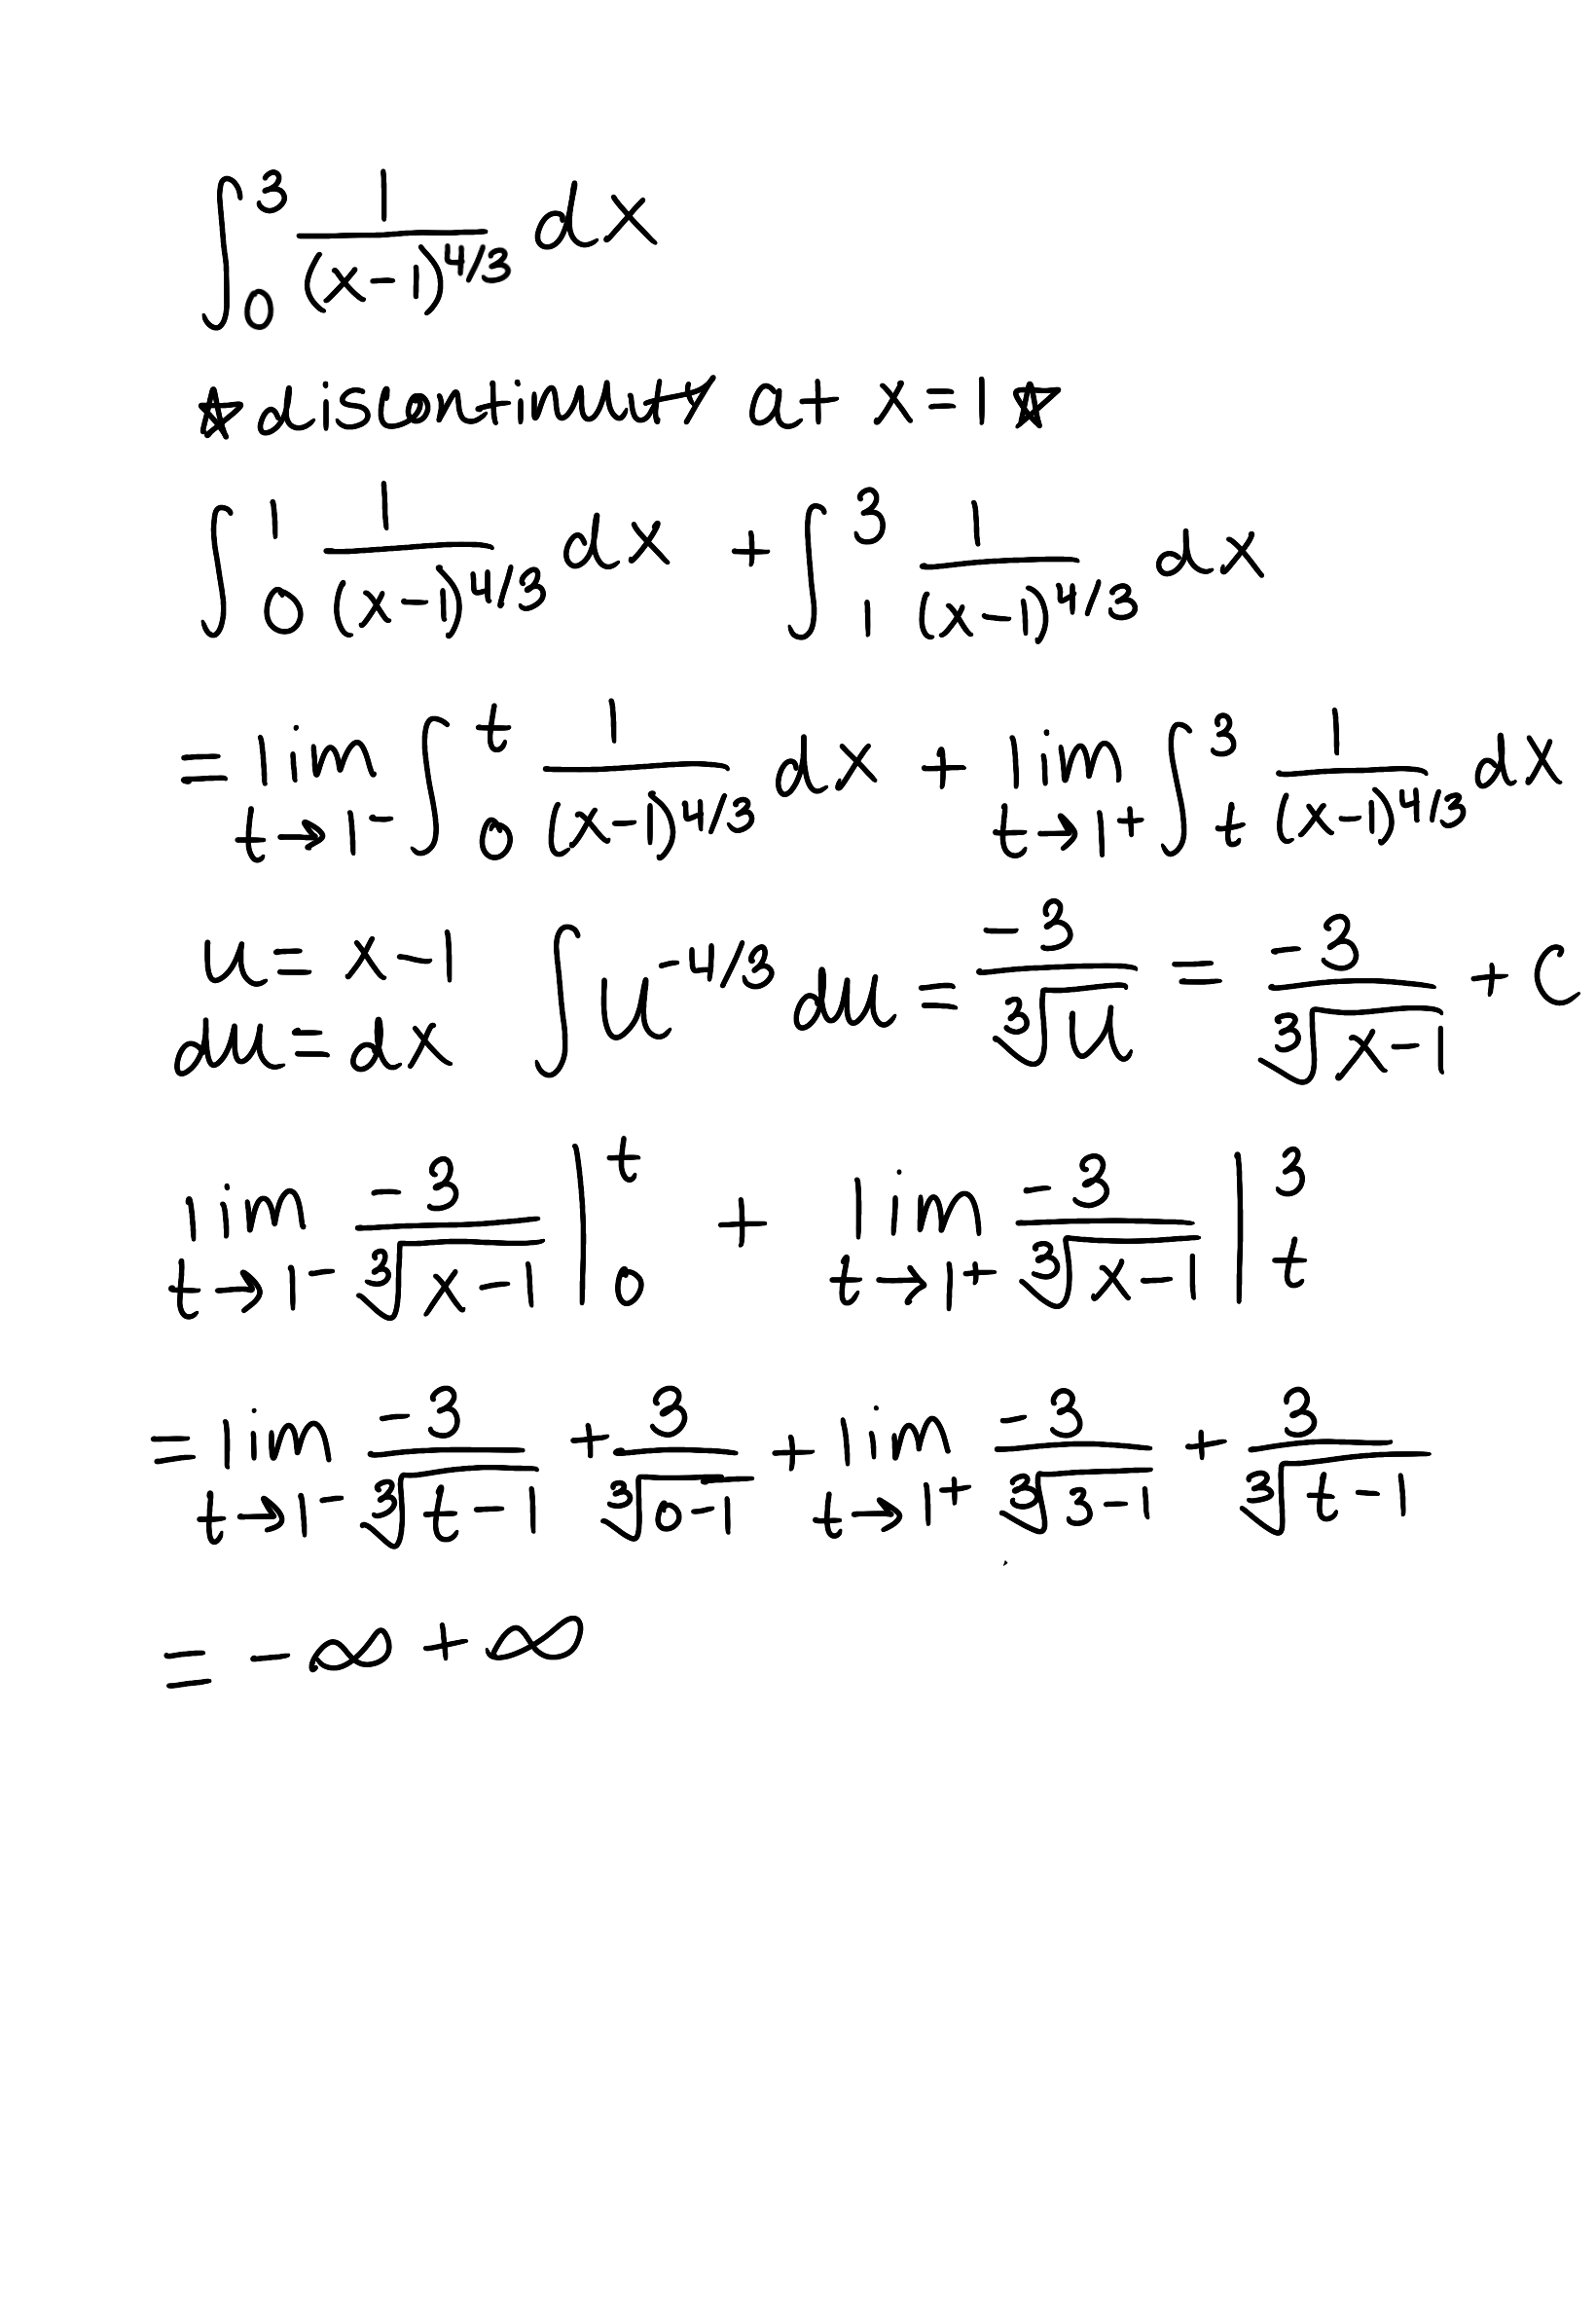 ∫₀³ 1/(x-1)^4/3 dx
☆ discontinuity at x=1 ☆
∫₀¹ 1/(x-1)^4/3 dx + ∫₁³ 1/(x-1)^4/3 dx
= lim t→1⁻ ∫₀ᵗ 1/(x-1)^4/3 dx + lim t→1⁺ ∫ₜ³ 1/(x-1)^4/3 dx
u = x-1 ∫ u^-4/3 du = -3/∛u = -3/∛(x-1) + C
du = dx
lim t→1⁻ -3/∛(x-1) |₀ᵗ + lim t→1⁺ -3/∛(x-1) |ₜ³
= lim t→1⁻ -3/∛(t-1) + 3/∛(0-1) + lim t→1⁺ -3/∛(3-1) + 3/∛(t-1)
= -∞ + ∞